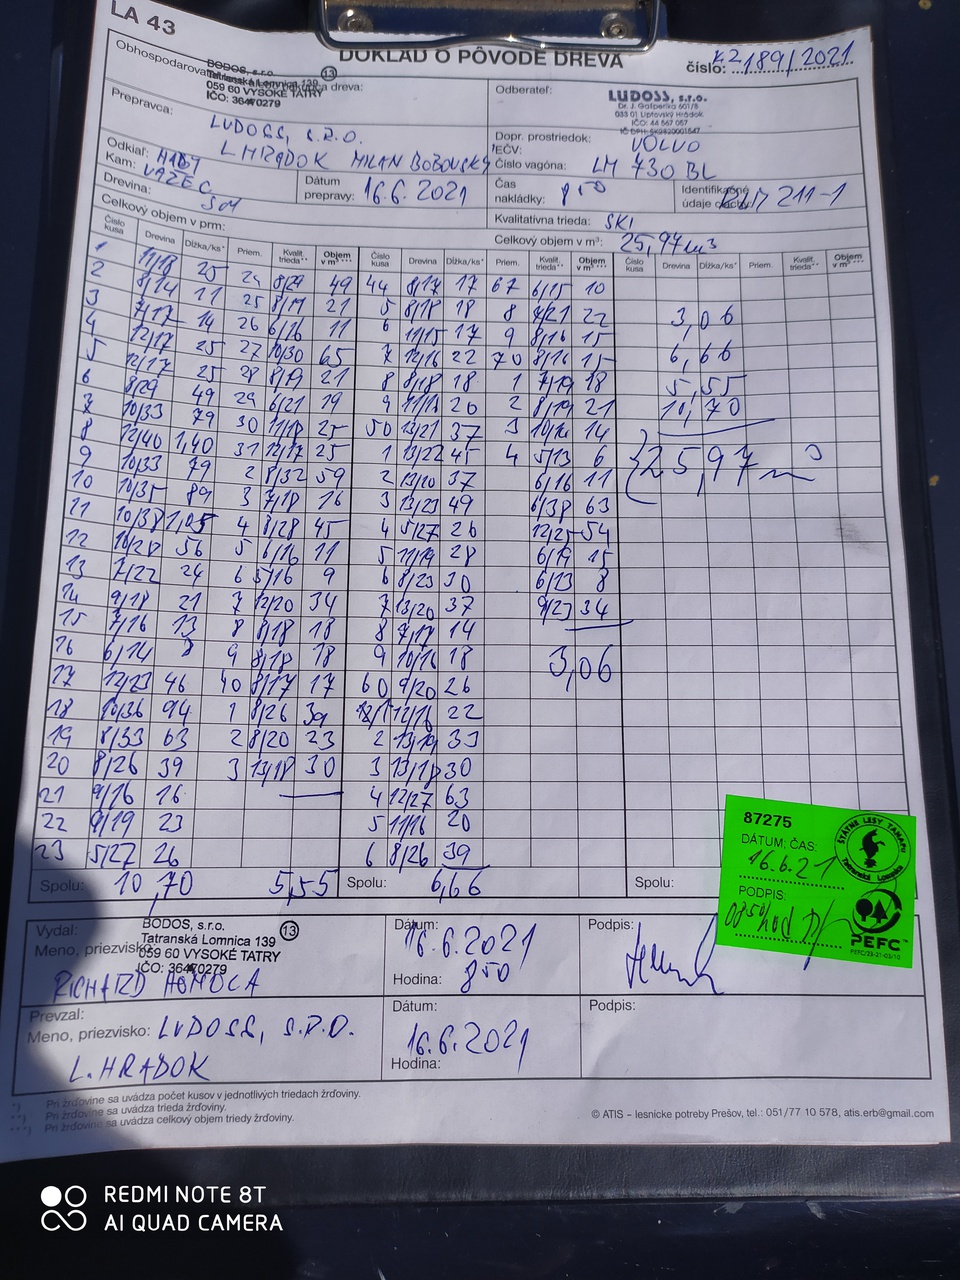 LA 43
DOKLAD O PÔVODE DREVA
číslo: K2 189/2021
BODOS, s.r.o.
Tatranská Lomnica 139
059 60 VYSOKÉ TATRY
IČO: 36470279
13
Odberateľ:
LUDOSS, s.r.o.
Dr. J. Gašperíka 601/8
033 01 Liptovský Hrádok
IČO: 44 567 057
Prepravca:
LUDOSS, s.r.o.
L HRADOK MILAN BOBOVSKÝ
Dopr. prostriedok: VOLVO
EČV:
Číslo vagóna: LM 730 BL
Odkiaľ:
Kam: VAZEC
Dátum prepravy: 16.6.2021
Čas nakládky: 8 50
Identifikačné
211-1
Drevina: SM
Kvalitatívna trieda: SKI
Celkový objem v prm:
Celkový objem v m³: 25,97 m3
Číslo kusa Drevina Dĺžka/ks* Priem. Kvalit. trieda** Objem v m³*** Číslo kusa Drevina Dĺžka/ks* Priem. Kvalit. trieda** Objem v m³*** Číslo kusa Drevina Dĺžka/ks* Priem. Kvalit. trieda** Objem v m³***
1 11/18 25 24 8/29 49 44 8/17 17 67 6/15 10
2 8/14 11 25 8/19 21 5 8/18 18 8 7/21 22 3,06
3 7/17 14 26 6/16 11 6 11/15 17 9 8/16 15
4 12/17 25 27 10/30 65 7 12/16 22 70 8/16 15 6,66
5 12/17 25 28 8/19 21 8 8/18 18 1 7/19 18 5,55
6 8/29 49 29 6/21 19 9 11/18 26 2 8/19 21 10,70
7 10/33 79 30 11/18 25 50 13/21 37 3 10/14 14
8 12/40 1,40 31 12/17 25 1 13/22 45 4 5/13 6 25,97 m3
9 10/33 79 2 8/32 59 2 13/20 37 6/16 11
10 10/35 89 3 7/18 16 3 13/23 49 6/38 63
11 10/38 1,05 4 8/28 45 4 5/27 26 12/25 54
12 10/28 56 5 6/16 11 5 11/19 28 6/19 15
13 7/22 24 6 5/16 9 6 8/23 30 6/13 8
14 9/18 21 7 12/20 34 7 13/20 37 9/23 34
15 7/16 13 8 8/18 18 8 7/17 14
16 6/14 8 9 8/18 18 9 10/16 18 3,06
17 12/23 46 40 8/17 17 60 9/20 26
18 10/36 94 1 8/26 39 12/16 22
19 8/33 63 2 8/20 23 2 13/19 33
20 8/26 39 3 13/18 30 3 13/18 30
21 9/16 16 4 12/27 63
22 9/19 23 5 11/16 20
23 5/27 26 6 8/26 39
Spolu: 10,70 5,55 Spolu: 6,66 Spolu:
87275
DÁTUM; ČAS:
16.6.21
PODPIS:
ŠTÁTNE LESY TANAPU
Tatranská Lomnica
PEFC
PEFC/23-21-03/10
Vydal:
Meno, priezvisko:
BODOS, s.r.o.
Tatranská Lomnica 139
059 60 VYSOKÉ TATRY
IČO: 36470279
13
RICHARD
Dátum: 16.6.2021
Hodina: 8 50
Podpis:
Prevzal:
Meno, priezvisko: LUDOSS, s.r.o.
L. HRADOK
Dátum:
16.6.2021
Hodina:
Podpis:
Pri žrďovine sa uvádza počet kusov v jednotlivých triedach žrďoviny.
Pri žrďovine sa uvádza trieda žrďoviny.
Pri žrďovine sa uvádza celkový objem triedy žrďoviny.
© ATIS – lesnícke potreby Prešov, tel.: 051/77 10 578, atis.erb@gmail.com
REDMI NOTE 8T
AI QUAD CAMERA